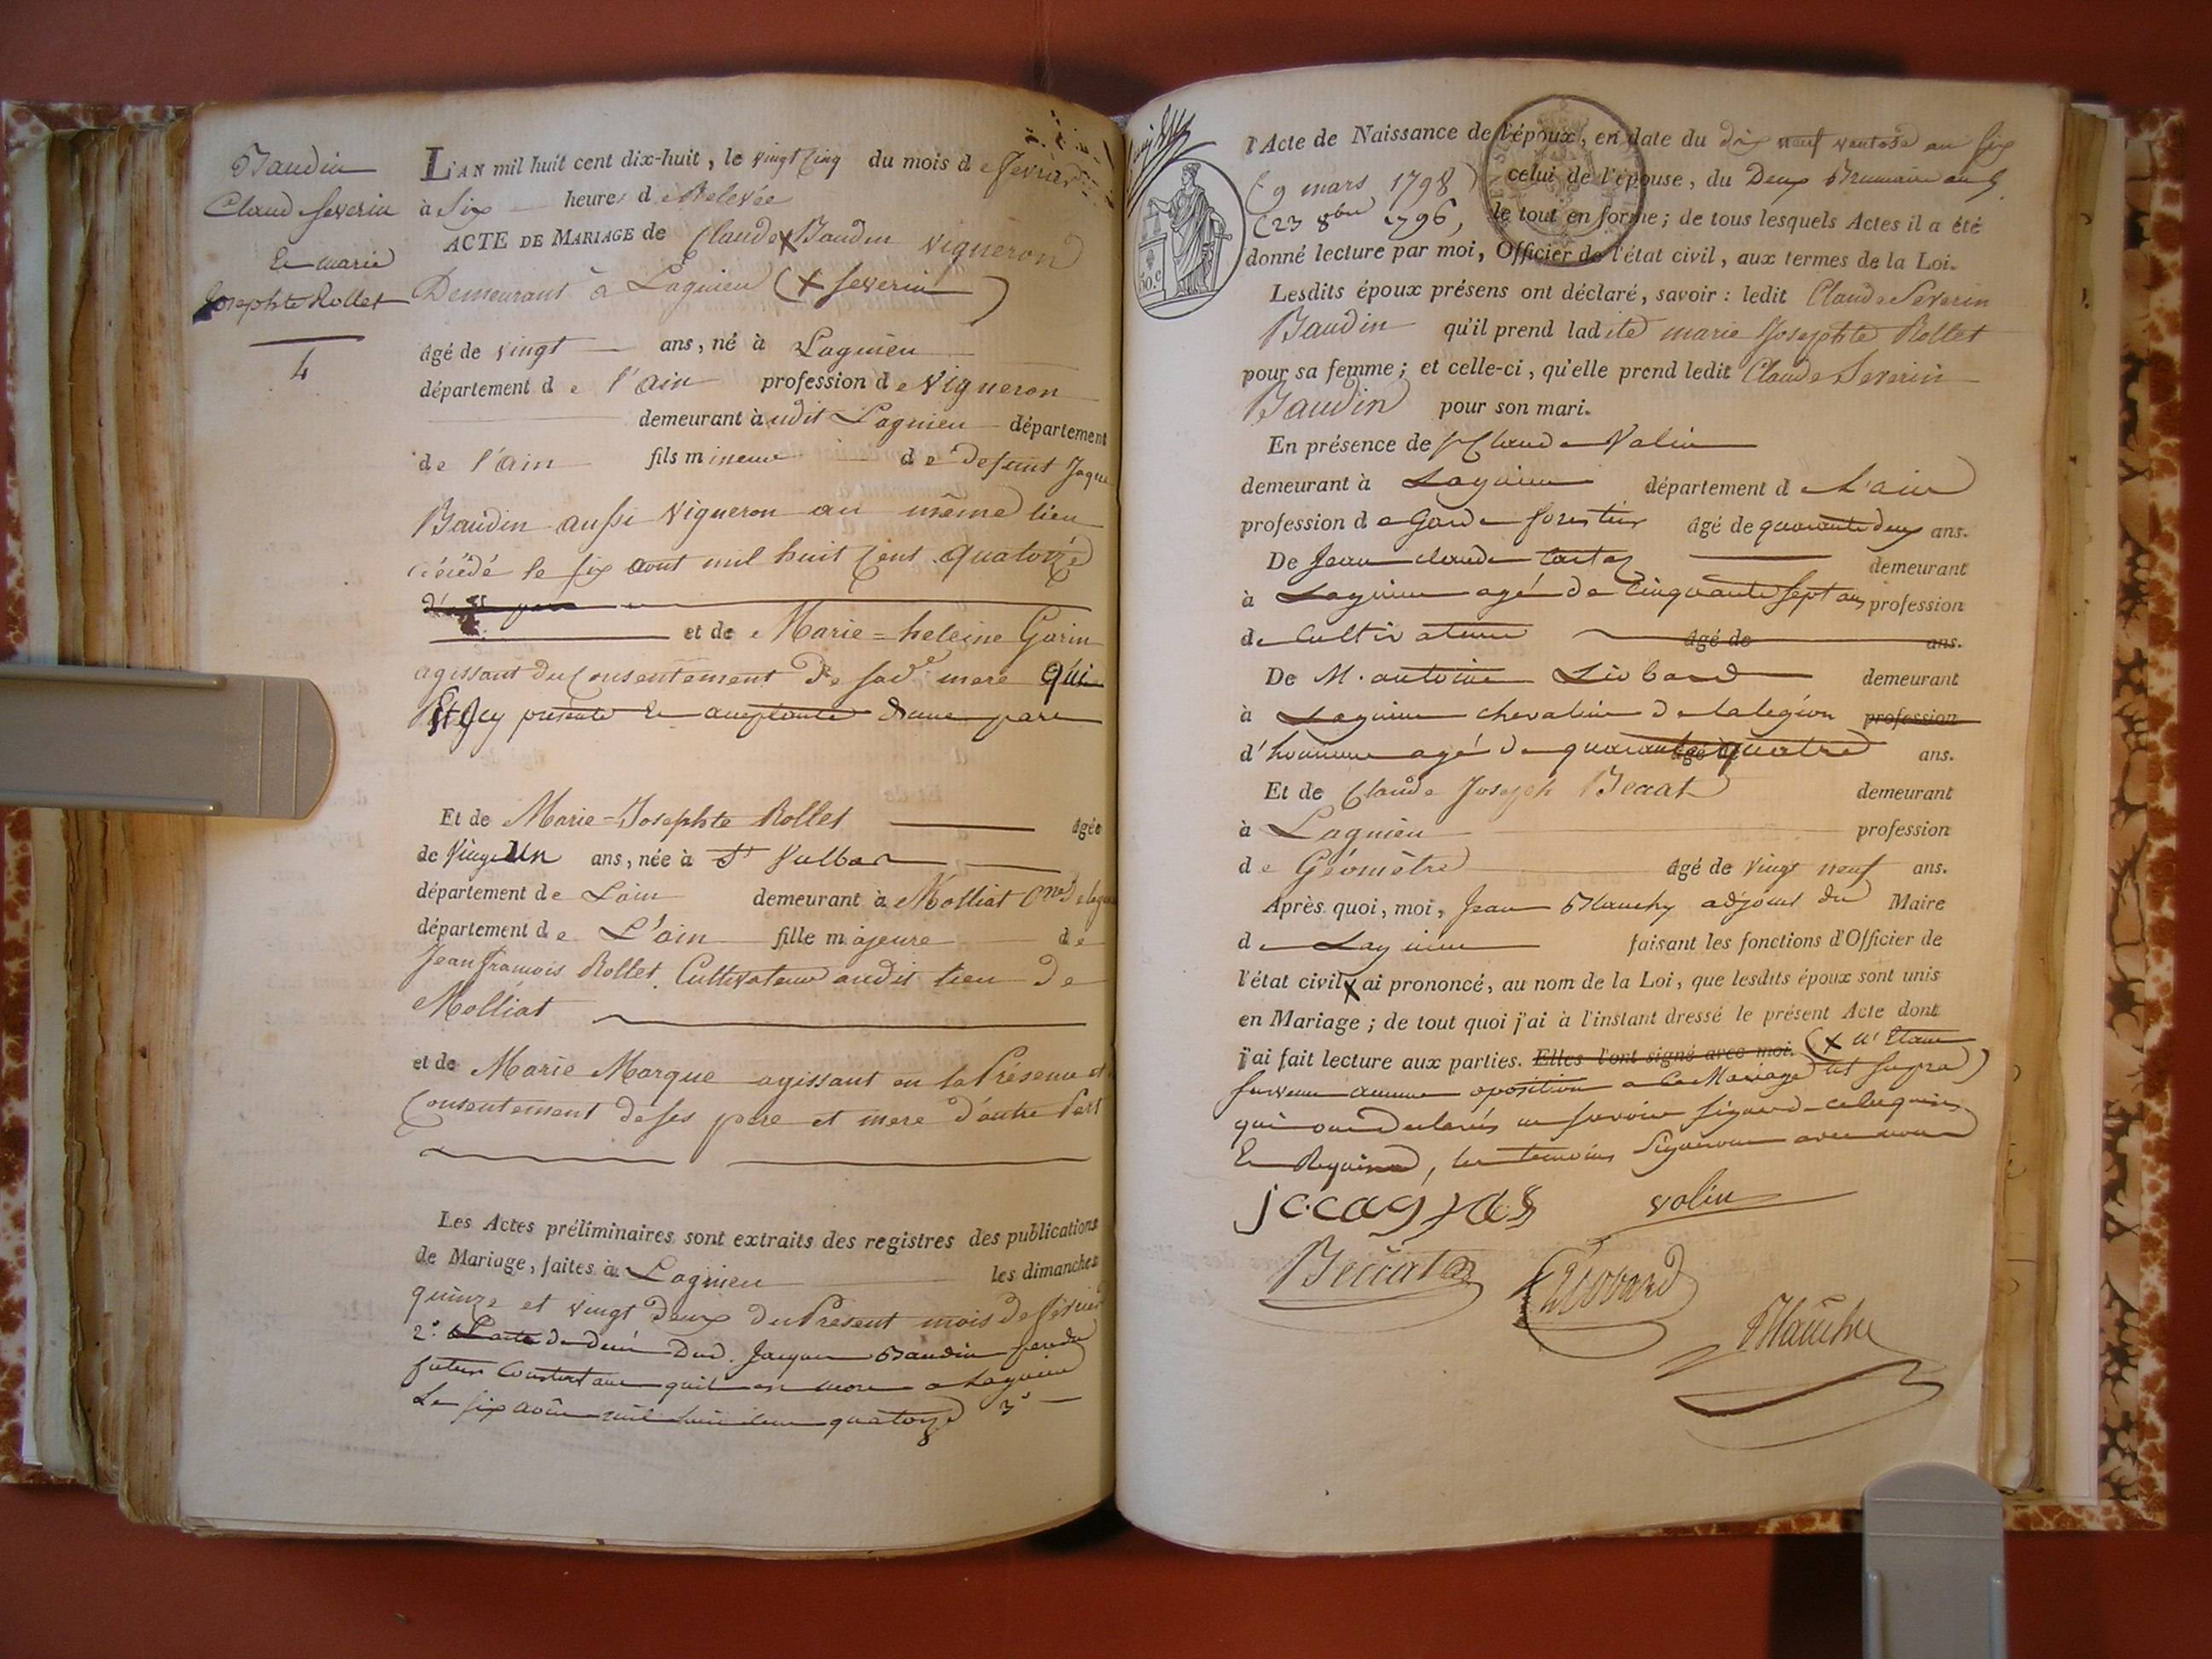 Baudin
Claud Severin
Et marie
Josephte Rollet
4
L'AN mil huit cent dix-huit, le vingt Cinq du mois de fevrier
à Six heures de Relevée
ACTE DE MARIAGE de Claude X Baudin vigneron
Demeurant à Lagnieu (X Severin)
âgé de vingt ans, né à Lagnieu
département de l'ain profession de vigneron
demeurant à udit Lagnieu département
de l'ain fils mineur de defunt Jaque
Baudin aussi vigneron au même lieu
décédé le six aout mil huit Cent quatorze
et de Marie=heleine Garin
agissant du Consentement De sad.e mere qui
Est Icy presente et acceptante d'une part
Et de Marie=Josephte Rollet âgée
de vingt Un ans, née à St Vulbas
département de Lain demeurant à Molliat
département de L'ain fille majeure de
Jean françois Rollet Cultivateur audit lieu de
Molliat
et de Marie Marque agissant en la Présence et
Consentement de ses pere et mere d'autre Part
Les Actes préliminaires sont extraits des registres des publications
de Mariage, faites à Lagnieu les dimanches
quinze et vingt Deux du Present mois de fevrier
2.o L'acte de Dud. Jacques Baudin pere du
futur Constatant quil est mort a Lagnieu
Le six aout mil huit cent quatorze 3o
l'Acte de Naissance de l'époux, en date du dix neuf ventose an six
(9 mars 1798) celui de l'épouse, du Deux Brumaire an 5
(23 8bre 1796, le tout en forme; de tous lesquels Actes il a été
donné lecture par moi, Officier de l'état civil, aux termes de la Loi.
50 c
Lesdits époux présens ont déclaré, savoir: ledit Claude Severin
Baudin qu'il prend ladite marie Josephte Rollet
pour sa femme; et celle-ci, qu'elle prend ledit Claude Severin
Baudin pour son mari.
En présence de Sr Claude Valin
demeurant à Lagnieu département de L'ain
profession de Garde forestier âgé de quarante deux ans.
De Jean claude demeurant
à Lagnieu agé de Cinquante sept ans profession
de Cultivateur âgé de ans.
De M. antoine Liobard demeurant
à Lagnieu chevalier de la légion profession
d'honneur agé de quarante quatre âgé de ans.
Et de Claude Joseph Beccat demeurant
à Lagnieu profession
de Géomètre âgé de vingt neuf ans.
Après quoi, moi, Jean Blanchy adjoint du Maire
de Lagnieu faisant les fonctions d'Officier de
l'état civil X ai prononcé, au nom de la Loi, que lesdits époux sont unis
en Mariage; de tout quoi j'ai à l'instant dressé le présent Acte dont
j'ai fait lecture aux parties. Elles l'ont signé avec moi. (X n'Etant
survenu aucune oposition a ce Mariage ut supra)
qui ont declarés ne savoir signer de ce enquis
Et Requis, les temoins Signeront avec nous
valin
Beccat
Liobard